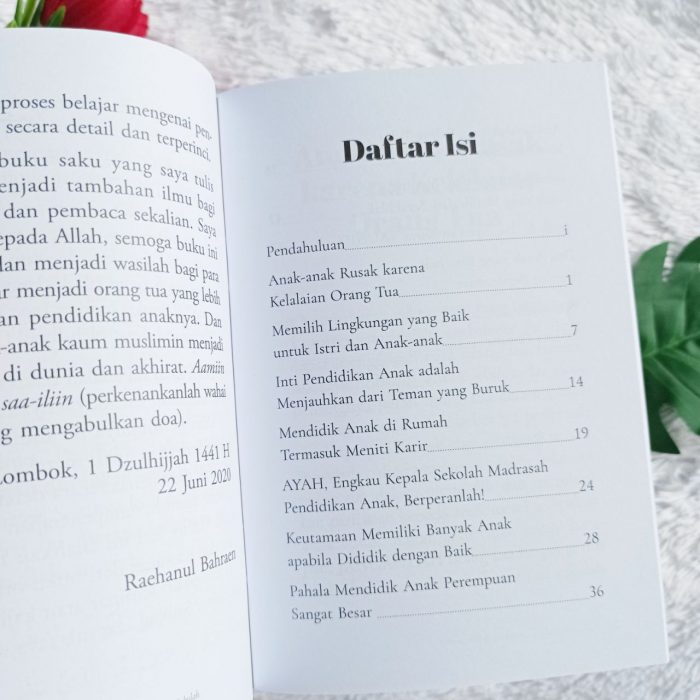 proses belajar mengenai pen-
secara detail dan terperinci.
buku saku yang saya tulis
enjadi tambahan ilmu bagi
dan pembaca sekalian. Saya
epada Allah, semoga buku ini
dan menjadi wasilah bagi para
ar menjadi orang tua yang lebih
an pendidikan anaknya. Dan
-anak kaum muslimin menjadi
di dunia dan akhirat. Aamiin
saa-iliin (perkenankanlah wahai
g mengabulkan doa).
Lombok, 1 Dzulhijjah 1441 H
22 Juni 2020
Raehanul Bahraen
Daftar Isi
Pendahuluan i
Anak-anak Rusak karena
Kelalaian Orang Tua 1
Memilih Lingkungan yang Baik
untuk Istri dan Anak-anak 7
Inti Pendidikan Anak adalah
Menjauhkan dari Teman yang Buruk 14
Mendidik Anak di Rumah
Termasuk Meniti Karir 19
AYAH, Engkau Kepala Sekolah Madrasah
Pendidikan Anak, Berperanlah! 24
Keutamaan Memiliki Banyak Anak
apabila Dididik dengan Baik 28
Pahala Mendidik Anak Perempuan
Sangat Besar 36